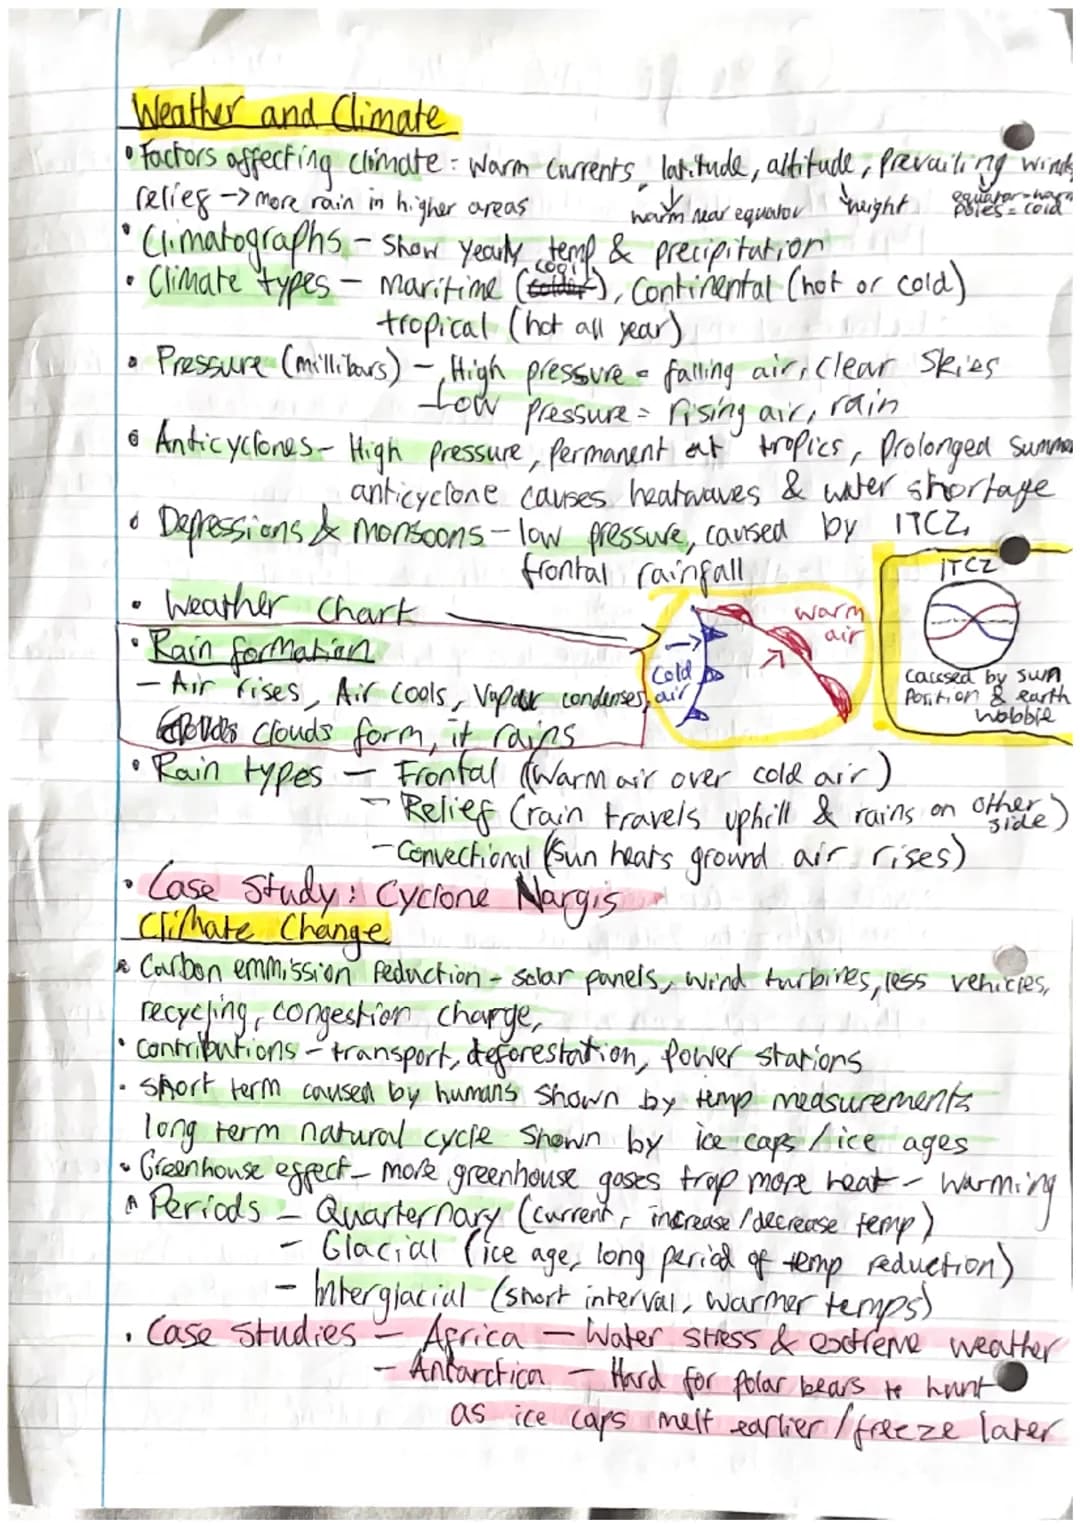 Weather and Climate
• Factors affecting climate: warm currents, latitude, altitude, prevailing winds
relief -> more rain in higher areas
warm near equator
height
equator = warm
poles = cold
• Climatographs - Show yearly temp & precipitation
cool
• Climate types - maritime (colder), Continental (hot or cold)
tropical (hot all year)
• Pressure (millibars) - High pressure = falling air, clear skies
- Low pressure = rising air, rain
• Anticyclones - High pressure, permanent at tropics, prolonged summer
anticyclone causes heatwaves & water shortage
• Depressions & monsoons - low pressure, caused by ITCZ,
frontal rainfall
• Weather chart
warm
air
Cold
air
ITCZ
caused by sun
position & earth
wobble
• Rain formation
- Air rises, Air cools, Vapour condenses,
clouds form, it rains
• Rain types - Frontal (Warm air over cold air)
- Relief (rain travels uphill & rains on other
side)
- Convectional (Sun heats ground air rises)
• Case Study: Cyclone Nargis
Climate Change
• Carbon emmission reduction - solar panels, wind turbines, less vehicles,
recycling, congestion charge,
• contributions - transport, deforestation, power stations
• short term caused by humans shown by temp measurements
long term natural cycle shown by ice caps / ice ages
• Greenhouse effect - more greenhouse gases trap more heat - warming
• Periods - Quarternary (current, increase / decrease temp)
- Glacial (ice age, long period of temp reduction)
- Interglacial (short interval, warmer temps)
• Case studies - Africa - Water stress & extreme weather
- Antarctica - Hard for polar bears to hunt
as ice caps melt earlier / freeze later